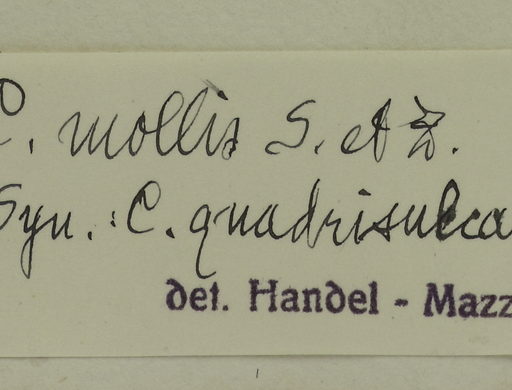 C. mollis S. et Z.
Syn.: C. quadrisulca
det. Handel - Mazz